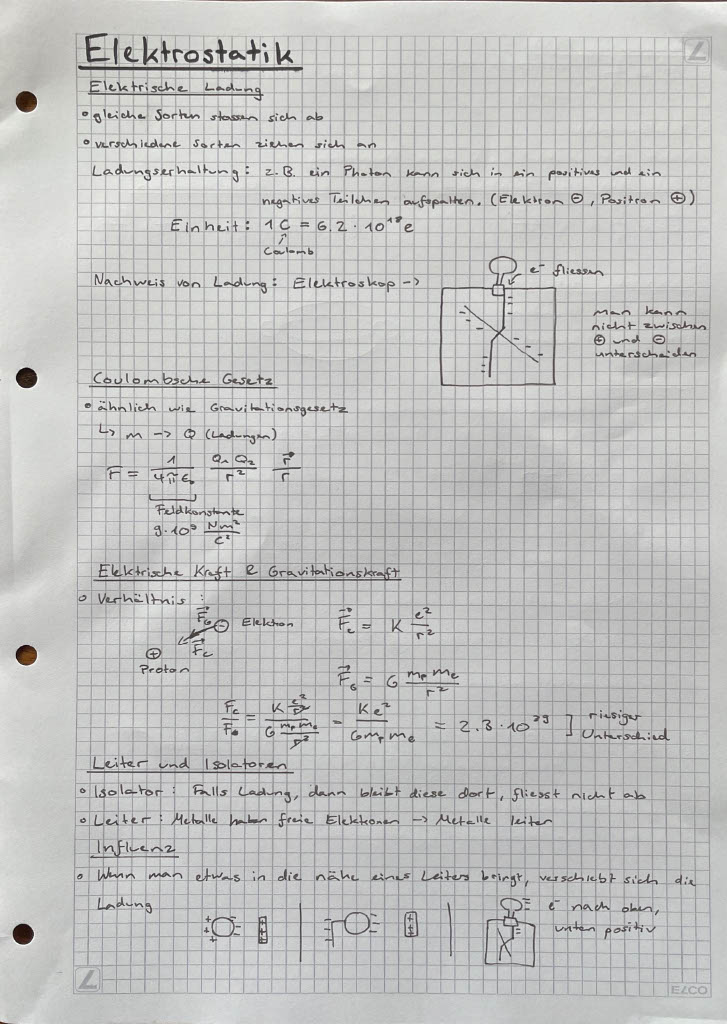 Elektrostatik
Elektrische Ladung
• gleiche Sorten stossen sich ab
• verschiedene Sorten ziehen sich an
Ladungserhaltung: z.B. ein Photon kann sich in ein positives und ein
negatives Teilchen aufspalten. (Elektron ⊖, Positron ⊕)
Einheit: 1 C = 6.2 · 10¹⁸ e
↑
Coulomb
Nachweis von Ladung: Elektroskop ->
e⁻ fliessen
man kann
nicht zwischen
⊕ und ⊖
unterscheiden
Coulombsche Gesetz
• ähnlich wie Gravitationsgesetz
↳ m -> Q (Ladungen)
F = 1/(4πε₀) Q₁ Q₂/r² r⃗/r
Feldkonstante
9·10⁹ Nm²/C²
Elektrische Kraft & Gravitationskraft
• Verhältnis:
F⃗G ⊖ Elektron
F⃗c
⊕
Proton
F⃗c = K e²/r²
F⃗G = G mp me/r²
Fc/FG = (K e²/r²)/(G mp me/r²) = K e²/(G mp me) = 2.3 · 10³⁹ ] riesiger
Unterschied
Leiter und Isolatoren
• Isolator: Falls Ladung, dann bleibt diese dort, fliesst nicht ab
• Leiter: Metalle haben freie Elektronen -> Metalle leiten
Influenz
• Wenn man etwas in die nähe eines Leiters bringt, verschiebt sich die
Ladung
e⁻ nach oben,
unten positiv
ELCO